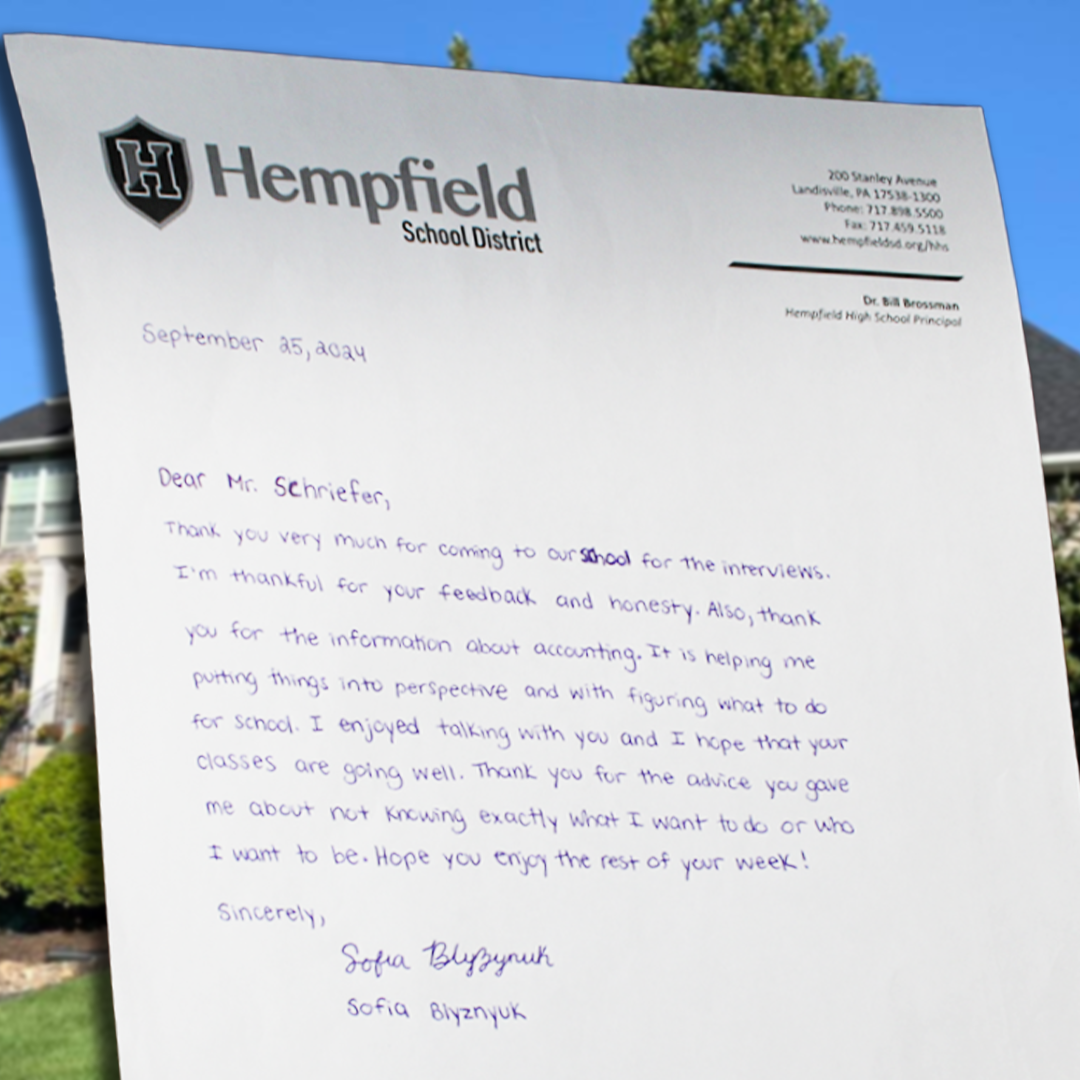 H Hempfield
School District
200 Stanley Avenue
Landisville, PA 17538-1300
Phone: 717.898.5500
Fax: 717.459.5118
www.hempfieldsd.org/hhs
Dr. Bill Brossman
Hempfield High School Principal
September 25, 2024
Dear Mr. Schriefer,
Thank you very much for coming to our school for the interviews.
I'm thankful for your feedback and honesty. Also, thank
you for the information about accounting. It is helping me
putting things into perspective and with figuring what to do
for school. I enjoyed talking with you and I hope that your
classes are going well. Thank you for the advice you gave
me about not knowing exactly what I want to do or who
I want to be. Hope you enjoy the rest of your week!
Sincerely,
Sofia Blyzynuk
Sofia Blyznyuk